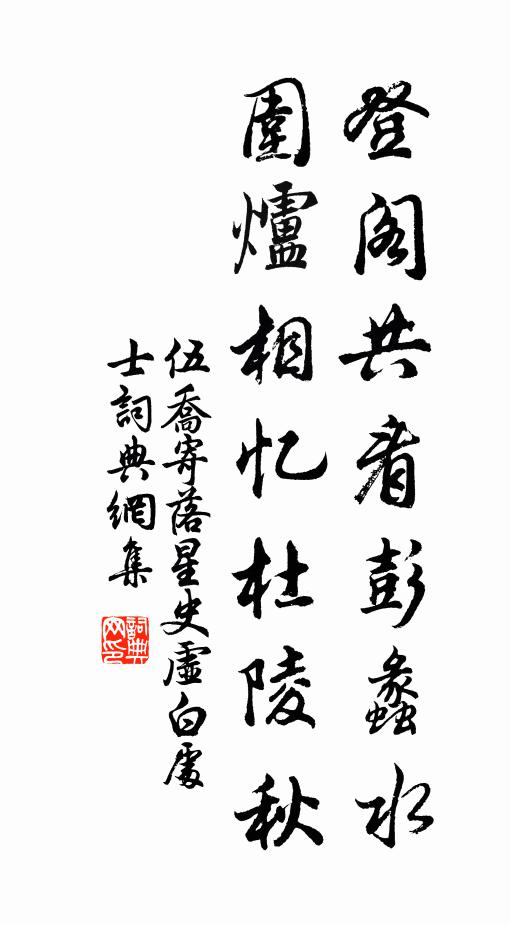 登阁共看彭蠡水
圍爐相忆杜陵秋
伍喬寄落星史虛白處
士詞典網集
詞典网印